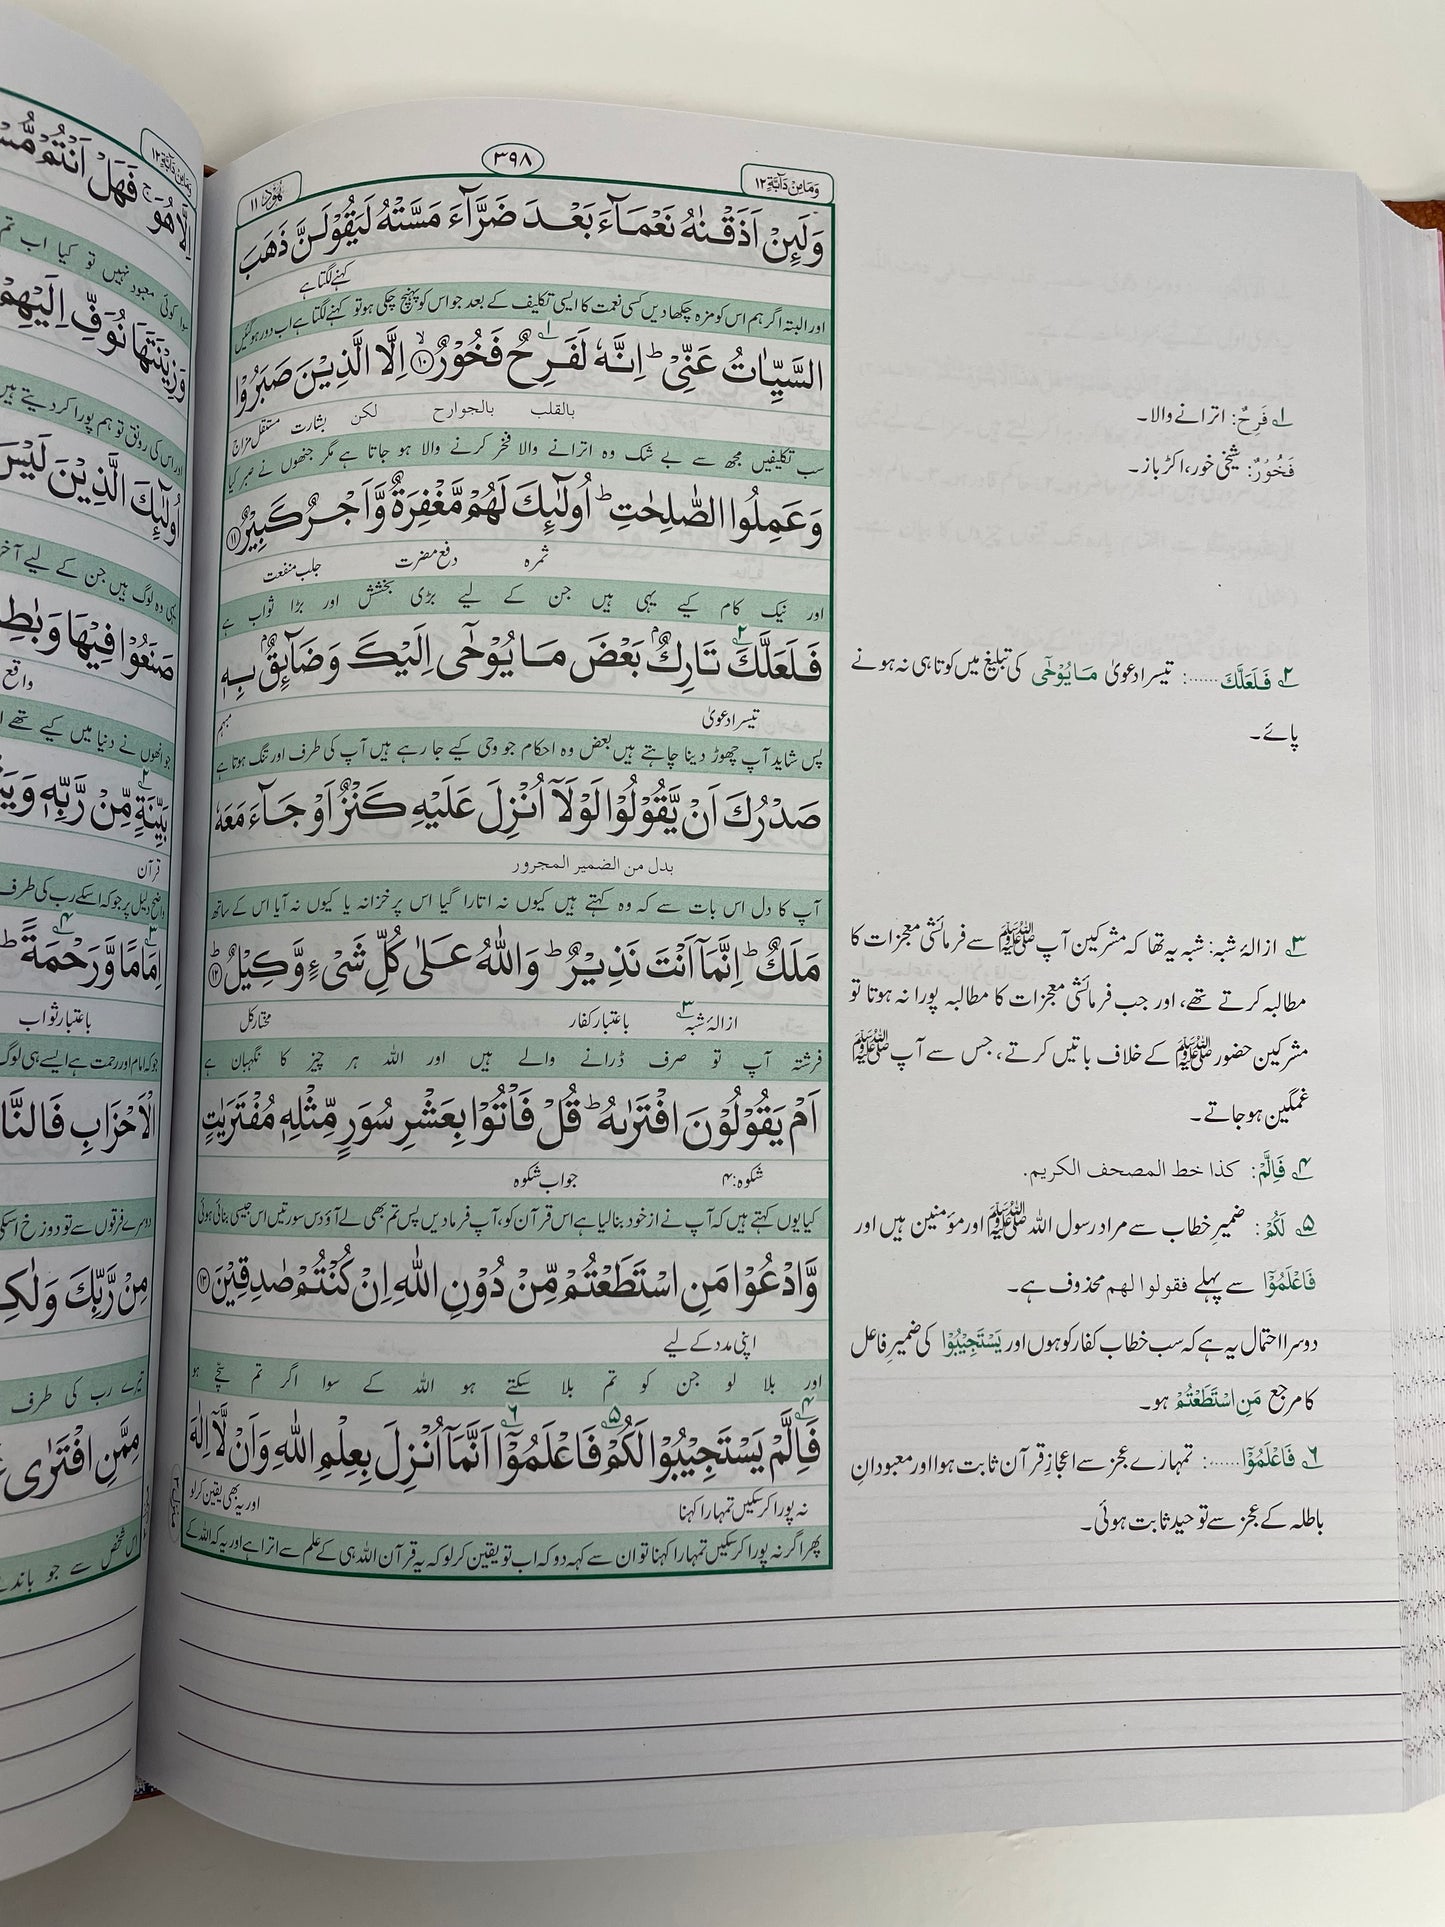 ۳۹۸
وَمَامِنْ دَآبَّةٍ ۱۲
هُوْد ۱۱
وَلَئِنْ اَذَقْنٰهُ نَعْمَآءَ بَعْدَ ضَرَّآءَ مَسَّتْهُ لَيَقُوْلَنَّ ذَهَبَ
کہنے لگتا ہے
اور البتہ اگر ہم اس کو مزہ چکھا دیں کسی نعمت کا ایسی تکلیف کے بعد جو اس کو پہنچ چکی ہو تو کہنے لگتا ہے اب دور ہو گئیں
السَّيِّاٰتُ عَنِّىْ ؕ اِنَّهٗ لَفَرِحٌ۱ فَخُوْرٌ ۙ﴿۱۰﴾ اِلَّا الَّذِيْنَ صَبَرُوْا
بالقلب بالجوارح لکن بشارت مستقل مزاج
سب تکلیفیں مجھ سے بے شک وہ اترانے والا فخر کرنے والا ہو جاتا ہے مگر جنھوں نے صبر کیا
وَعَمِلُوا الصّٰلِحٰتِ ؕ اُولٰٓئِكَ لَهُمْ مَّغْفِرَةٌ وَّاَجْرٌ كَبِيْرٌ ﴿۱۱﴾
ثمرہ دفع مضرت جلب منفعت
اور نیک کام کیے یہی ہیں جن کے لیے بڑی بخشش اور بڑا ثواب ہے
فَلَعَلَّكَ۲ تَارِكٌۢ بَعْضَ مَا يُوْحٰٓى اِلَيْكَ وَضَآئِقٌۢ بِهٖ
تیسرا دعویٰ مبہم
پس شاید آپ چھوڑ دینا چاہتے ہیں بعض وہ احکام جو وحی کیے جا رہے ہیں آپ کی طرف اور تنگ ہوتا ہے
صَدْرُكَ اَنْ يَّقُوْلُوْا لَوْلَآ اُنْزِلَ عَلَيْهِ كَنْزٌ اَوْ جَآءَ مَعَهٗ
بدل من الضمير المجرور
آپ کا دل اس بات سے کہ وہ کہتے ہیں کیوں نہ اتارا گیا اس پر خزانہ یا کیوں نہ آیا اس کے ساتھ
مَلَكٌ ؕ اِنَّمَآ اَنْتَ نَذِيْرٌ ؕ وَاللّٰهُ عَلٰى كُلِّ شَىْءٍ وَّكِيْلٌ ؕ﴿۱۲﴾
ازالۂ شبہ۳ باعتبار کفار مختار کل
فرشتہ آپ تو صرف ڈرانے والے ہیں اور اللہ ہر چیز کا نگہبان ہے
اَمْ يَقُوْلُوْنَ افْتَرٰىهُ ؕ قُلْ فَاْتُوْا بِعَشْرِ سُوَرٍ مِّثْلِهٖ مُفْتَرَيٰتٍ
شکوہ: ۴ جواب شکوہ
کیا یوں کہتے ہیں کہ آپ نے از خود بنا لیا ہے اس قرآن کو، آپ فرما دیں پس تم بھی لے آؤ دس سورتیں اس جیسی بنائی ہوئی
وَّادْعُوْا مَنِ اسْتَطَعْتُمْ مِّنْ دُوْنِ اللّٰهِ اِنْ كُنْتُمْ صٰدِقِيْنَ ﴿۱۳﴾
اپنی مدد کے لیے
اور بلا لو جن کو تم بلا سکتے ہو اللہ کے سوا اگر تم سچے ہو
فَاِلَّمْ۴ يَسْتَجِيْبُوْا لَكُمْ۵ فَاعْلَمُوْٓا۶ اَنَّمَآ اُنْزِلَ بِعِلْمِ اللّٰهِ وَاَنْ لَّآ اِلٰهَ
نہ پورا کر سکیں تمہارا کہنا اور یہ بھی یقین کر لو
پھر اگر نہ پورا کر سکیں تمہارا کہنا تو ان سے کہہ دو کہ اب تو یقین کر لو کہ یہ قرآن اللہ ہی کے علم سے اترا ہے اور یہ کہ اللہ کے
منزل ۳
۱ فَرِحٌ: اترانے والا۔
فَخُوْرٌ: شیخی خور، اکڑ باز۔
۲ فَلَعَلَّكَ......: تیسرا دعویٰ مَا يُوْحٰٓى کی تبلیغ میں کوتاہی نہ ہونے
پائے۔
۳ ازالۂ شبہ: شبہ یہ تھا کہ مشرکین آپ ﷺ سے فرمائشی معجزات کا
مطالبہ کرتے تھے، اور جب فرمائشی معجزات کا مطالبہ پورا نہ ہوتا تو
مشرکین حضور ﷺ کے خلاف باتیں کرتے، جس سے آپ ﷺ
غمگین ہو جاتے۔
۴ فَاِلَّمْ: كذا خط المصحف الكريم.
۵ لَكُمْ: ضمیرِ خطاب سے مراد رسول اللہ ﷺ اور مؤمنین ہیں اور
فَاعْلَمُوْٓا سے پہلے فقولوا لهم محذوف ہے۔
دوسرا احتمال یہ ہے کہ سب خطاب کفار کو ہوں اور يَسْتَجِيْبُوْا کی ضمیرِ فاعل
کا مرجع مَنِ اسْتَطَعْتُمْ ہو۔
۶ فَاعْلَمُوْٓا......: تمہارے عجز سے اعجازِ قرآن ثابت ہوا اور معبودانِ
باطلہ کے عجز سے توحید ثابت ہوئی۔
وَمَامِنْ دَآبَّةٍ ۱۲
اِلَّا هُوَ ۚ فَهَلْ اَنْتُمْ
سوا کوئی معبود نہیں تو کیا اب تم
وَزِيْنَتَهَا نُوَفِّ اِلَيْهِمْ
اور اس کی رونق تو ہم پورا کر دیتے ہیں
اُولٰٓئِكَ الَّذِيْنَ لَيْسَ
یہی وہ لوگ ہیں جن کے لیے
صَنَعُوْا فِيْهَا
واقع
جو انھوں نے دنیا میں کیے تھے
بَيِّنَةٍ۲ مِّنْ رَّبِّهٖ
قرآن
واضح دلیل پر جو کہ اسکے رب کی طرف
اِمَامًا۳ وَّرَحْمَةً۴ ؕ
باعتبار ثواب
جو کہ امام اور رحمت ہے ایسے ہی لوگ
الْاَحْزَابِ
دوسرے فرقوں سے تو دوزخ
مِنْ رَّبِّكَ
تیرے رب کی طرف
مِمَّنِ افْتَرٰى
اس شخص سے جو باندھے